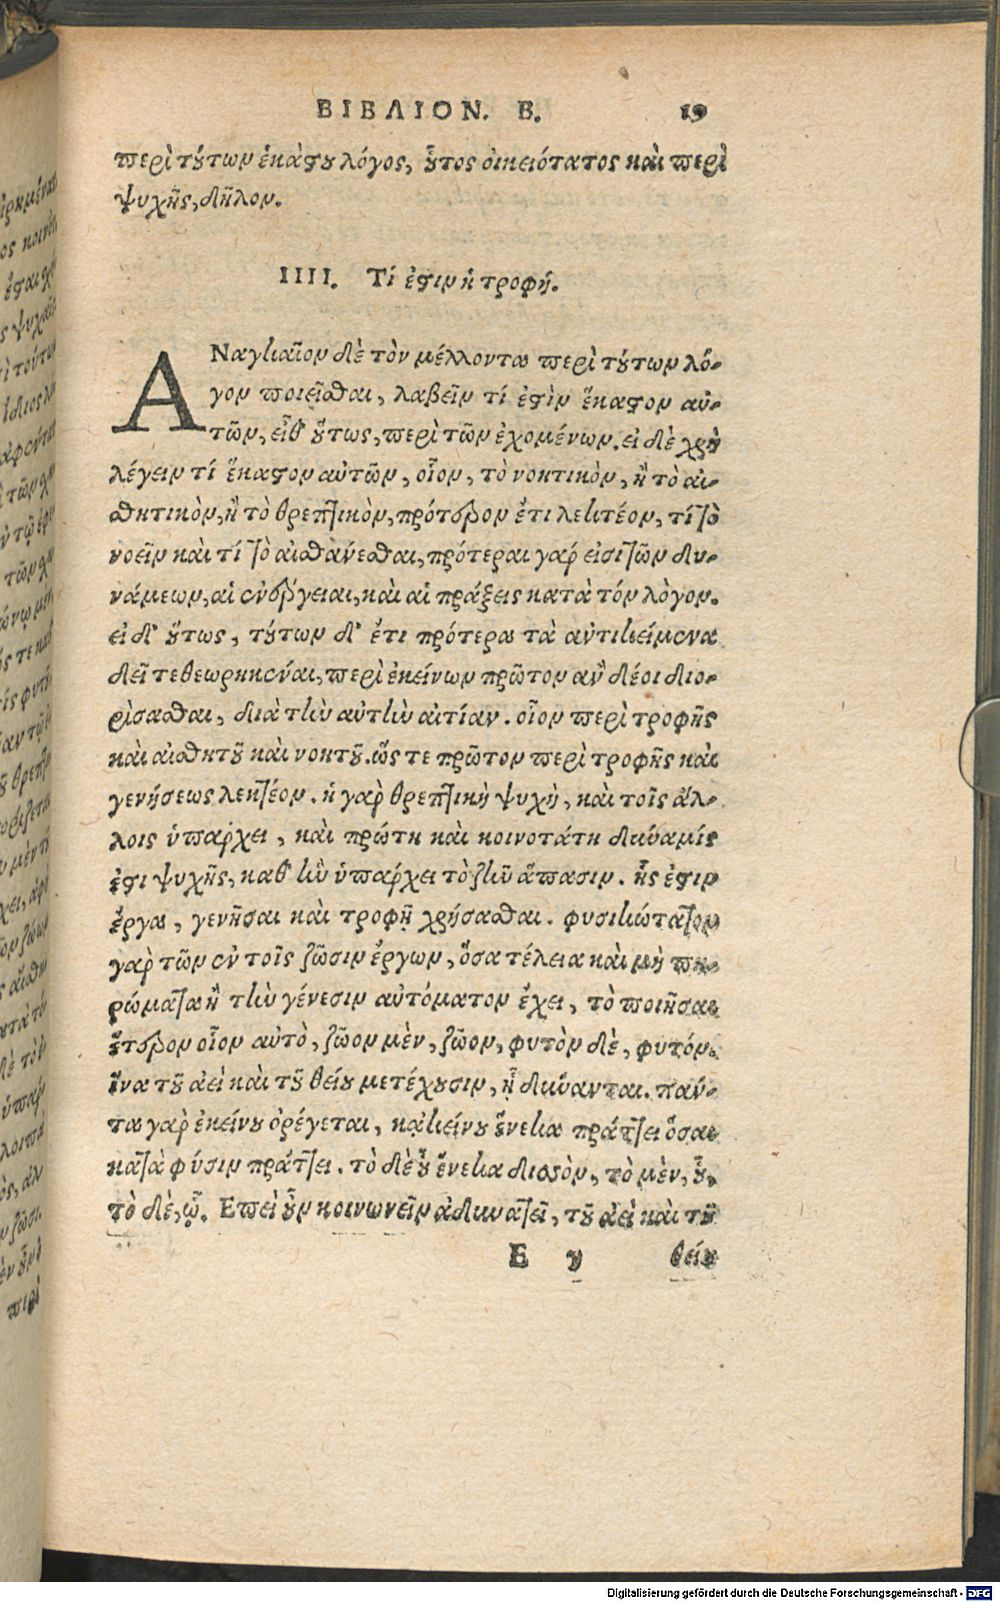 ΒΙΒΛΙΟΝ. Β. 19
περὶ τούτων ἑκάστου λόγος, οὗτος οἰκειότατος καὶ περὶ
ψυχῆς, δῆλον.
IIII. Τί ἐστιν ἡ τροφή.
ΑΝαγκαῖον δὲ τὸν μέλλοντα περὶ τούτων λό-
γον ποιεῖσθαι, λαβεῖν τί ἐστὶν ἕκαστον αὐ-
τῶν, εἶθ' οὕτως, περὶ τῶν ἐχομένων. εἰ δὲ χρὴ
λέγειν τί ἕκαστον αὐτῶν, οἷον, τὸ νοητικὸν, ἢ τὸ αἰ-
σθητικὸν, ἢ τὸ θρεπτικὸν, πρότερον ἔτι λεκτέον, τί τὸ
νοεῖν καὶ τί τὸ αἰσθάνεσθαι, πρότεραι γάρ εἰσι τῶν δυ-
νάμεων, αἱ ἐνέργειαι, καὶ αἱ πράξεις κατὰ τὸν λόγον.
εἰ δ' οὕτως, τούτων δ' ἔτι πρότερα τὰ ἀντικείμενα
δεῖ τεθεωρηκέναι, περὶ ἐκείνων πρῶτον ἂν δέοι διο-
ρίσασθαι, διὰ τὴν αὐτὴν αἰτίαν. οἷον περὶ τροφῆς
καὶ αἰσθητοῦ καὶ νοητοῦ. ὥς τε πρῶτον περὶ τροφῆς καὶ
γενήσεως λεκτέον. ἡ γὰρ θρεπτικὴ ψυχὴ, καὶ τοῖς ἄλ-
λοις ὑπάρχει, καὶ πρώτη καὶ κοινοτάτη δύναμίς
ἐστι ψυχῆς, καθ' ἣν ὑπάρχει τὸ ζῆν ἅπασιν. ἧς ἐστιν
ἔργα, γενῆσαι καὶ τροφῇ χρήσασθαι. φυσικώτατον
γὰρ τῶν ἐν τοῖς ζῶσιν ἔργων, ὅσα τέλεια καὶ μὴ πη-
ρώματα ἢ τὴν γένεσιν αὐτόματον ἔχει, τὸ ποιῆσαι
ἕτερον οἷον αὐτὸ, ζῶον μὲν, ζῶον, φυτὸν δὲ, φυτόν.
ἵνα τοῦ ἀεὶ καὶ τοῦ θείου μετέχουσιν, ᾗ δύνανται. πάν-
τα γὰρ ἐκείνου ὀρέγεται, κᾀκείνου ἕνεκα πράττει ὅσα
κατὰ φύσιν πράττει. τὸ δὲ οὗ ἕνεκα δισσὸν, τὸ μὲν, οὗ,
τὸ δὲ, ᾧ. Ἐπεὶ οὖν κοινωνεῖν ἀδυνατεῖ, τοῦ ἀεὶ καὶ τοῦ
E y θείου
Digitalisierung gefördert durch die Deutsche Forschungsgemeinschaft - DFG